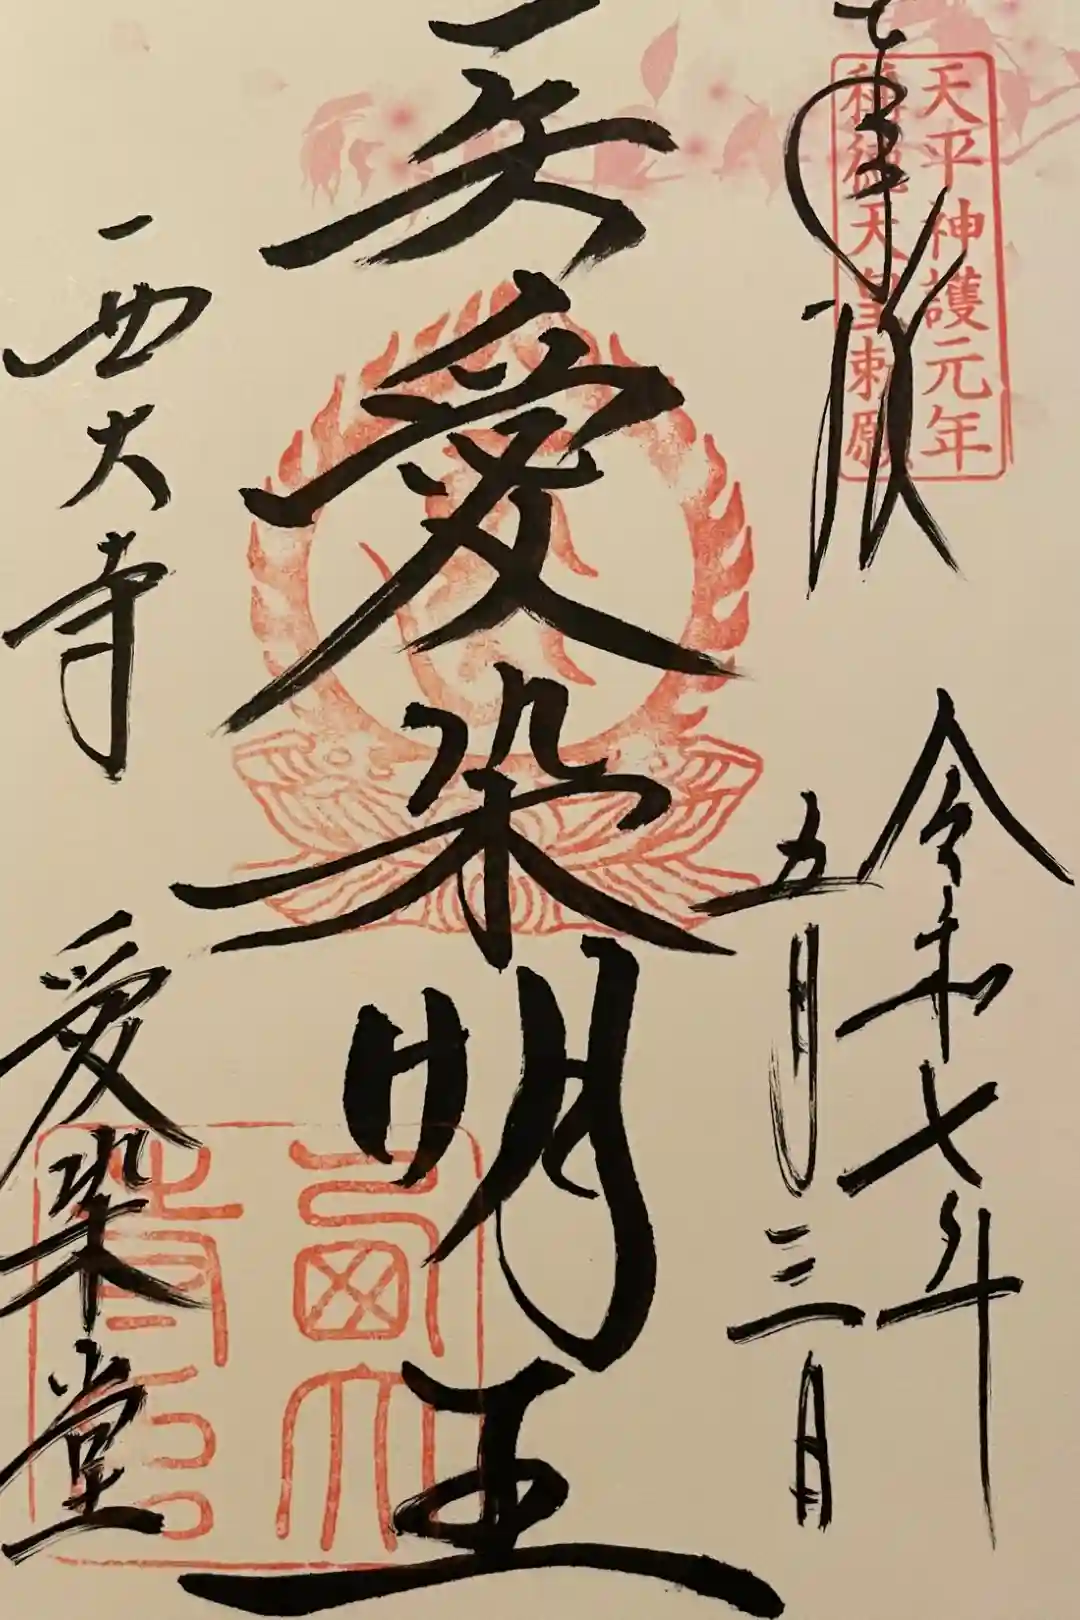 奉拝
天平神護元年
稱徳天皇勅願
令和七年
五月三日
愛染明王
西大寺 愛染堂